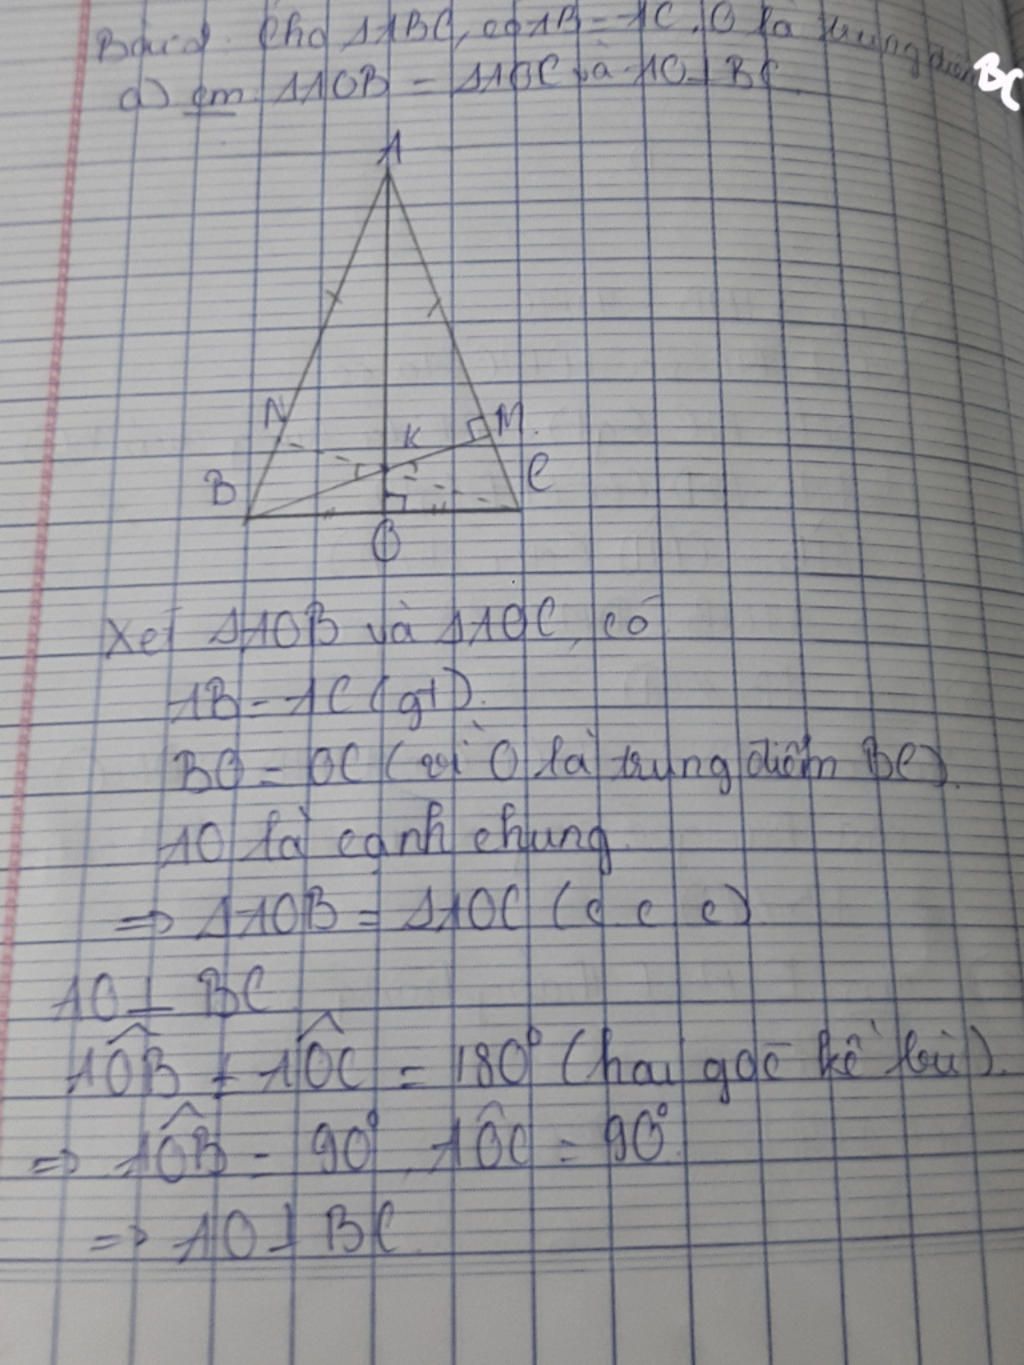 Cho ΔABC, có AB = AC. O là trung điểm BC
a) cm ΔAOB = ΔAOC và AO ⊥ BC
A
N
M
K
B
C
O
Xét ΔAOB và ΔAOC có
AB = AC (gt).
BO = OC (vì O là trung điểm BC).
AO là cạnh chung
=> ΔAOB = ΔAOC (c c c)
AO ⊥ BC
AÔB + AÔC = 180° (hai góc kề bù).
=> AÔB = 90°, AÔC = 90°.
=> AO ⊥ BC.